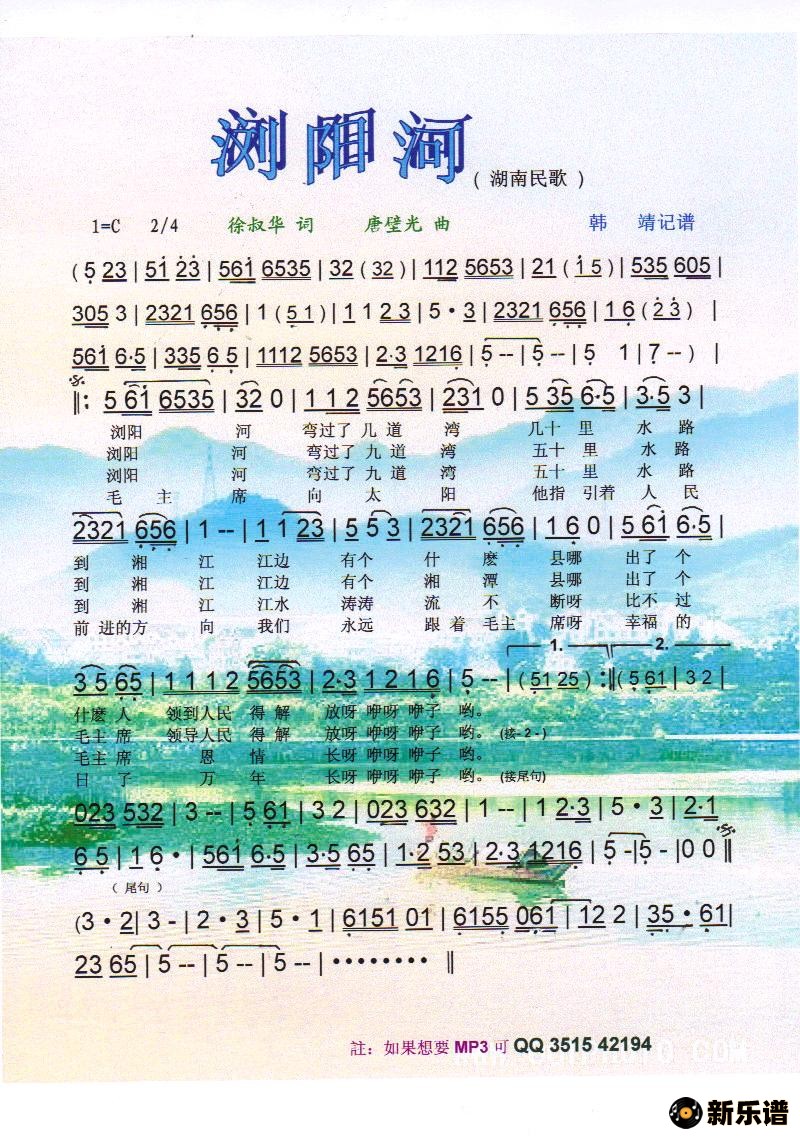 浏阳河
( 湖南民歌 )
1=C 2/4 徐叔华 词 唐璧光 曲 韩 靖记谱
( 5 23 | 51 23 | 561 6535 | 32 ( 32 ) | 112 5653 | 21 ( 15 ) | 535 605 |
305 3 | 2321 656 | 1 ( 5 1 ) | 1 1 2 3 | 5 · 3 | 2321 656 | 1 6 ( 23 ) |
561 6·5 | 335 6 5 | 1112 5653 | 2·3 1216 | 5 -- | 5 -- | 5 1 | 7 -- ) |
‖: 5 61 6535 | 32 0 | 1 1 2 5653 | 231 0 | 5 35 6·5 | 3·5 3 |
浏阳 河 弯过了 几 道 湾 几十 里 水 路
浏阳 河 弯过了 九 道 湾 五十 里 水 路
浏阳 河 弯过了 九 道 湾 五十 里 水 路
毛 主 席 向 太 阳 他指 引着 人 民
2321 656 | 1 -- | 1 1 23 | 5 5 3 | 2321 656 | 1 6 0 | 5 61 6·5 |
到 湘 江 江边 有个 什 麽 县哪 出了 个
到 湘 江 江边 有个 湘 潭 县哪 出了 个
到 湘 江 江水 涛涛 流 不 断呀 比不 过
前 进的方 向 我们 永远 跟 着 毛主 席呀 幸福 的
1. 2.
3 5 65 | 1 1 1 2 5653 | 2·3 1 2 1 6 | 5 -- | ( 51 25 ) :‖ ( 5 61 | 3 2 |
什麽 人 领到人民 得 解 放呀 咿呀 咿子 哟。
毛主 席 领导人民 得 解 放呀 咿呀 咿子 哟。 (接- 2 - )
毛主 席 恩 情 长呀 咿呀 咿子 哟。
日 子 万 年 长呀 咿呀 咿子 哟。 (接尾句)
023 532 | 3 -- | 5 61 | 3 2 | 023 632 | 1 -- | 1 2·3 | 5 · 3 | 2·1
6 5 | 1 6 · | 561 6·5 | 3·5 65 | 1·2 53 | 2·3 1216 | 5 -| 5 - |0 0 ‖
( 尾句 )
(3 · 2| 3 - | 2 · 3 | 5 · 1 | 6151 01 | 6155 061 | 12 2 | 35 · 61|
23 65 | 5 -- | 5 -- | 5 -- | · · · · · · · · ‖
註：如果想要 MP3 可 QQ 3515 42194
新乐谱